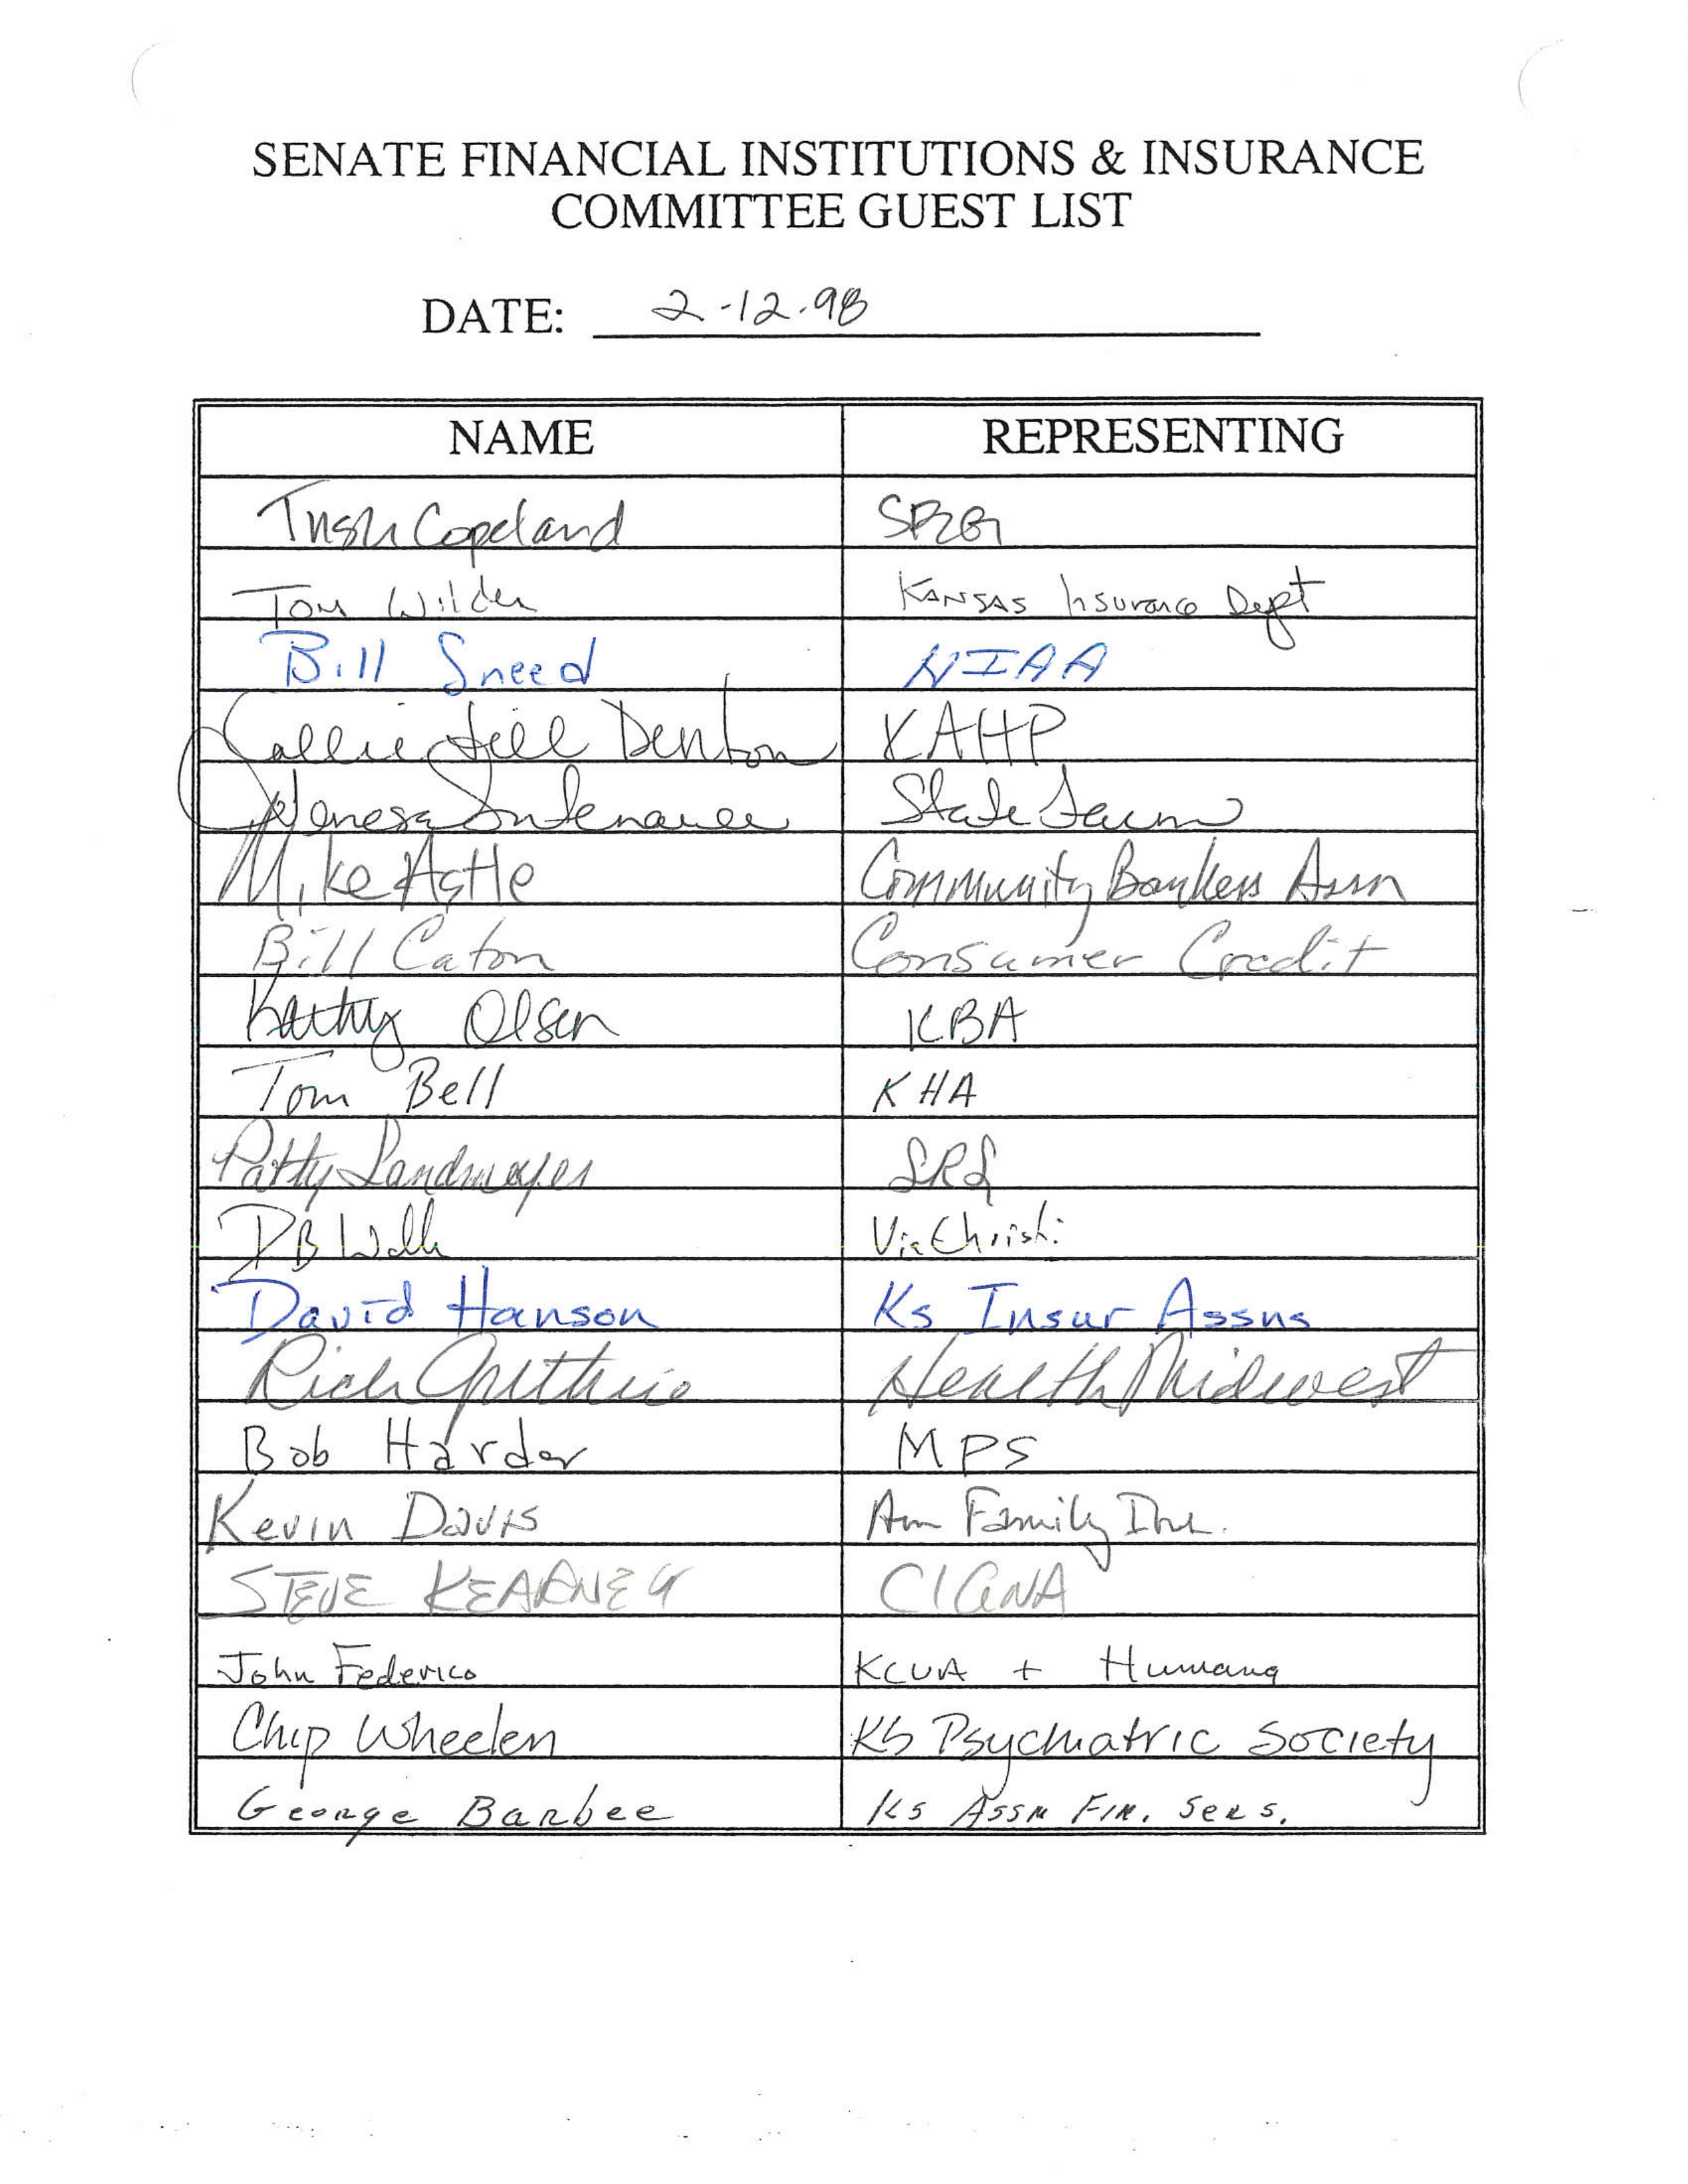 SENATE FINANCIAL INSTITUTIONS & INSURANCE
COMMITTEE GUEST LIST
DATE: 2-12-98
NAME REPRESENTING
Trish Copeland
Tom Wilder Kansas Insurance Dept
Bill Sneed HIAA
Callie Jill Denton KAHP
State Farm
Mike Astle Community Bankers Assn
Bill Caton Consumer Credit
Kathy Olsen KBA
Tom Bell KHA
Patty Landmayer SRS
Via Christi
David Hanson Ks Insur Assns
Rich Guthrie Health Midwest
Bob Harder MPS
Kevin Davis Am Family Ins.
STEVE KEARNEY CIGNA
John Federico KCUA + Humana
Chip Wheelen KS Psychiatric Society
George Barbee Ks Assn Fin. Sers.